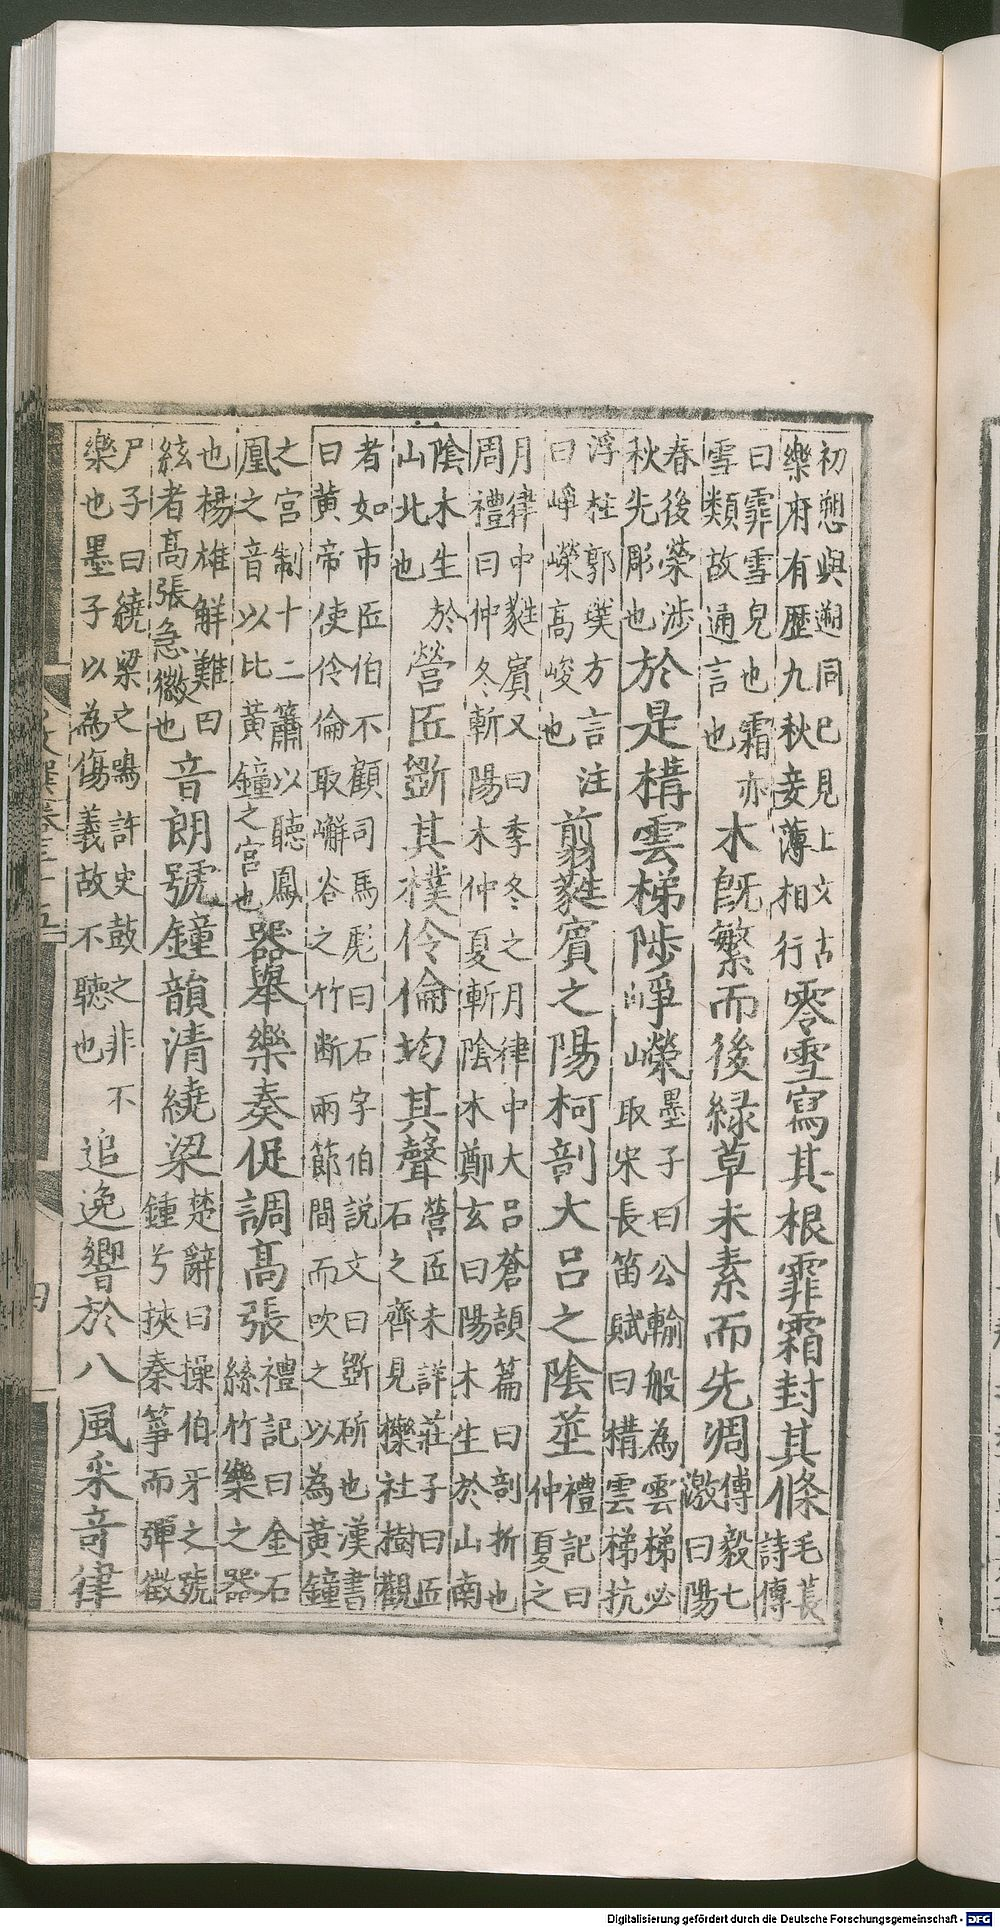 初愬與遡同已見上文古
樂府有歷九秋妾薄相行
零雪寫其根霏霜封其條
毛萇
詩傳
曰霏雪皃也霜亦
雪類故通言也
木旣繁而後緑草未素而先凋
傅毅七
激曰陽
春後榮涉
秋先彫也
於是構雲梯陟崢嶸
墨子曰公輸般為雲梯必
取宋長笛賦曰構雲梯抗
浮柱郭璞方言注
曰崢嶸高峻也
翦蕤賓之陽柯剖大呂之陰莖
禮記曰
仲夏之
月律中蕤賓又曰季冬之月律中大呂蒼頡篇曰剖折也
周禮曰仲冬斬陽木仲夏斬陰木鄭玄曰陽木生於山南
陰木生於
山北也
營匠斲其樸伶倫均其聲
營匠未詳莊子曰匠
石之齊見櫟社樹觀
者如市匠伯不顧司馬彪曰石字伯説文曰斲斫也漢書
曰黃帝使伶倫取嶰谷之竹断兩節間而吹之以為黃鐘
之宮制十二籥以聽鳳
凰之音以比黃鐘之宮也
器舉樂奏促調髙張
禮記曰金石
絲竹樂之器
也楊雄解難曰
絃者髙張急徽也
音朗號鐘韻清繞梁
楚辭曰操伯牙之號
鍾兮挾秦箏而彈徵
尸子曰繞梁之鳴許史鼓之非不
樂也墨子以為傷義故不聽也
追逸響於八風采竒律
文選卷三十五
四
Digitalisierung gefördert durch die Deutsche Forschungsgemeinschaft - DFG